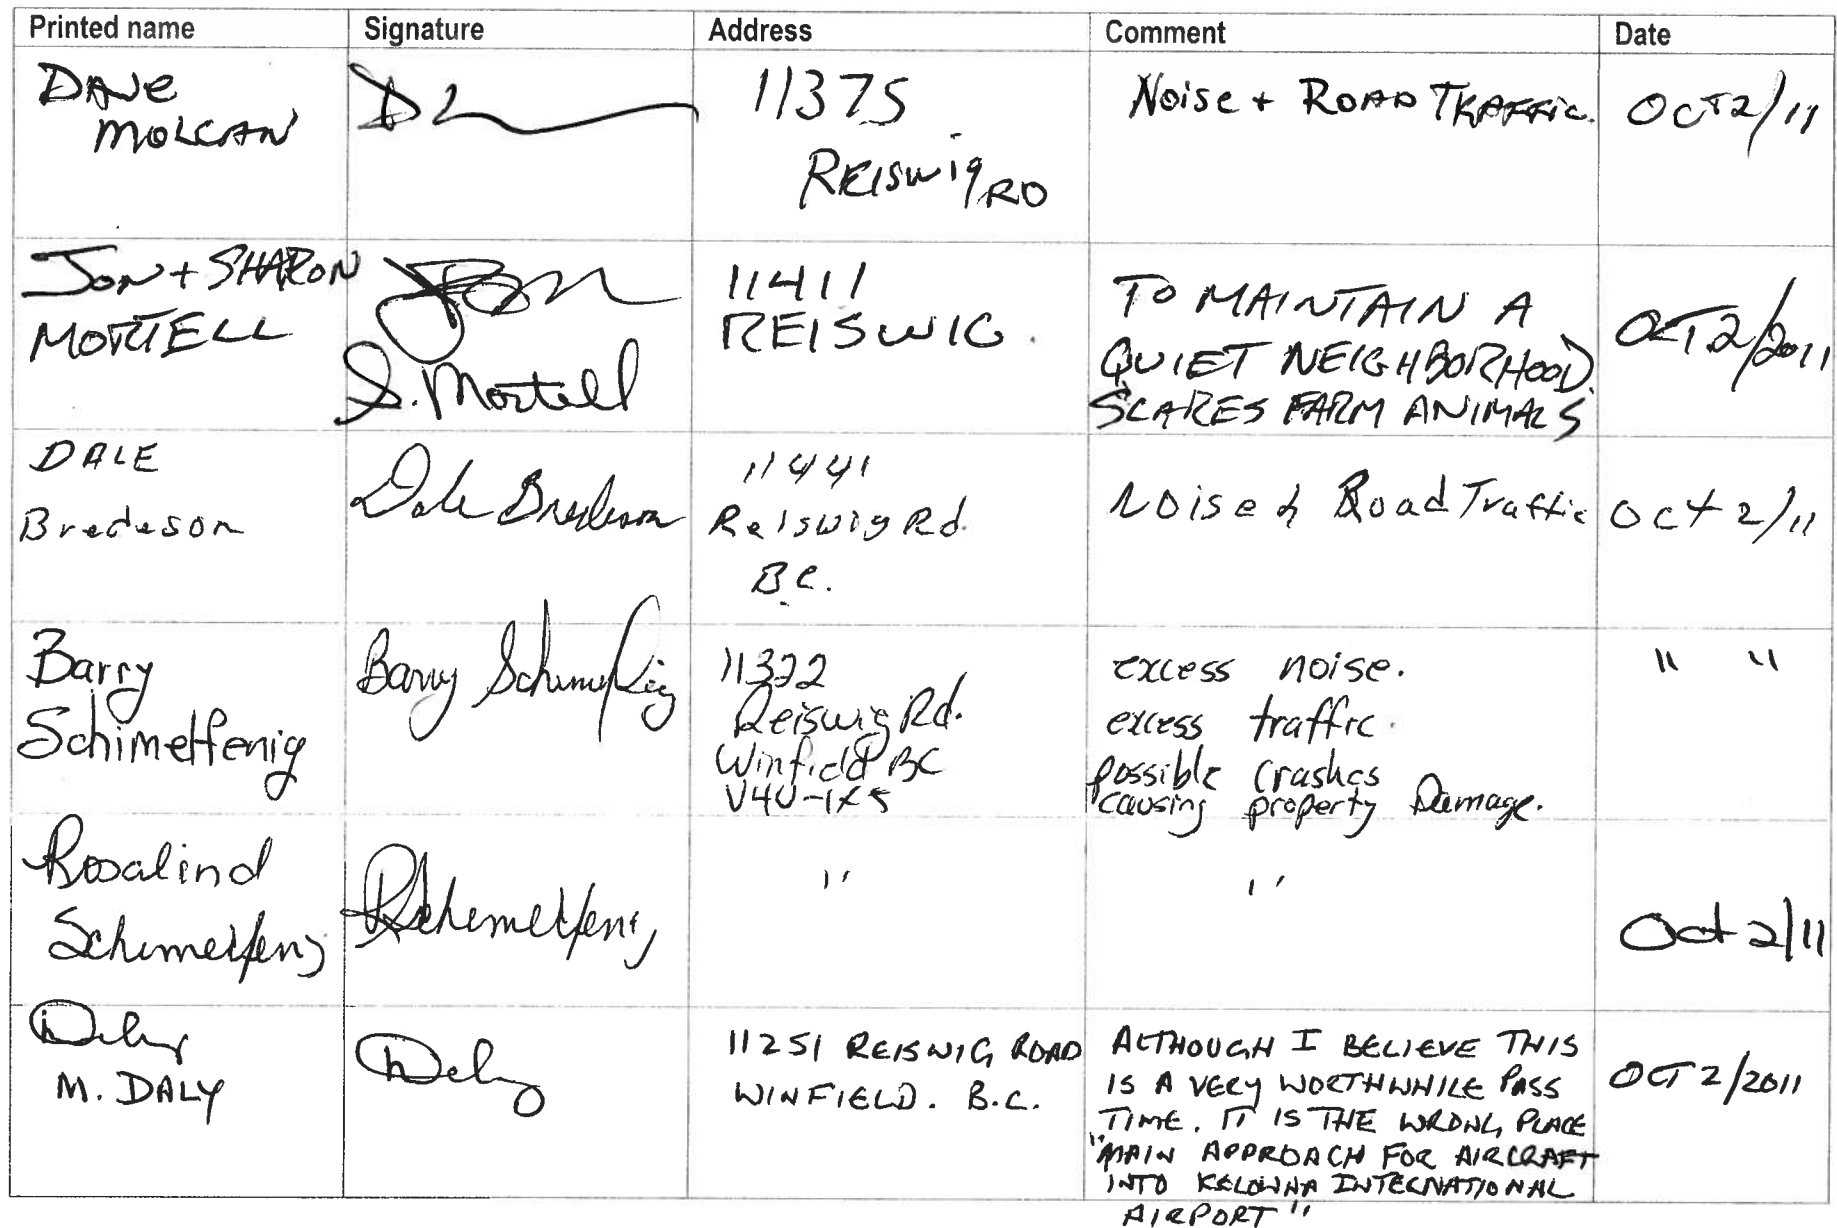 Printed name Signature Address Comment Date
DAVE
MOLCAN
11375
REISWIG RD
NOISE + ROAD TRAFFIC.
OCT 2/11
JON + SHARON
MORTELL
Jon
S. Mortell
11411
REISWIG.
TO MAINTAIN A
QUIET NEIGHBORHOOD.
SCARES FARM ANIMALS
OCT 2/2011
DALE
Bredeson
Dale Bredeson
11441
Reiswig Rd.
B.C.
Noise & Road Traffic
Oct 2/11
Barry
Schimelfenig
Barry Schimelfenig
11322
Reiswig Rd.
Winfield BC
V4V-1X5
excess noise.
excess traffic.
possible crashes
causing property Damage.
" "
Rosalind
Schimelfenig
RSchimelfenig
"
"
Oct 2/11
Daly
M. DALY
Daly
11251 REISWIG ROAD
WINFIELD. B.C.
ALTHOUGH I BELIEVE THIS
IS A VERY WORTHWHILE PASS
TIME. IT IS THE WRONG PLACE
"MAIN APPROACH FOR AIRCRAFT
INTO KELOWNA INTERNATIONAL
AIRPORT"
OCT 2/2011